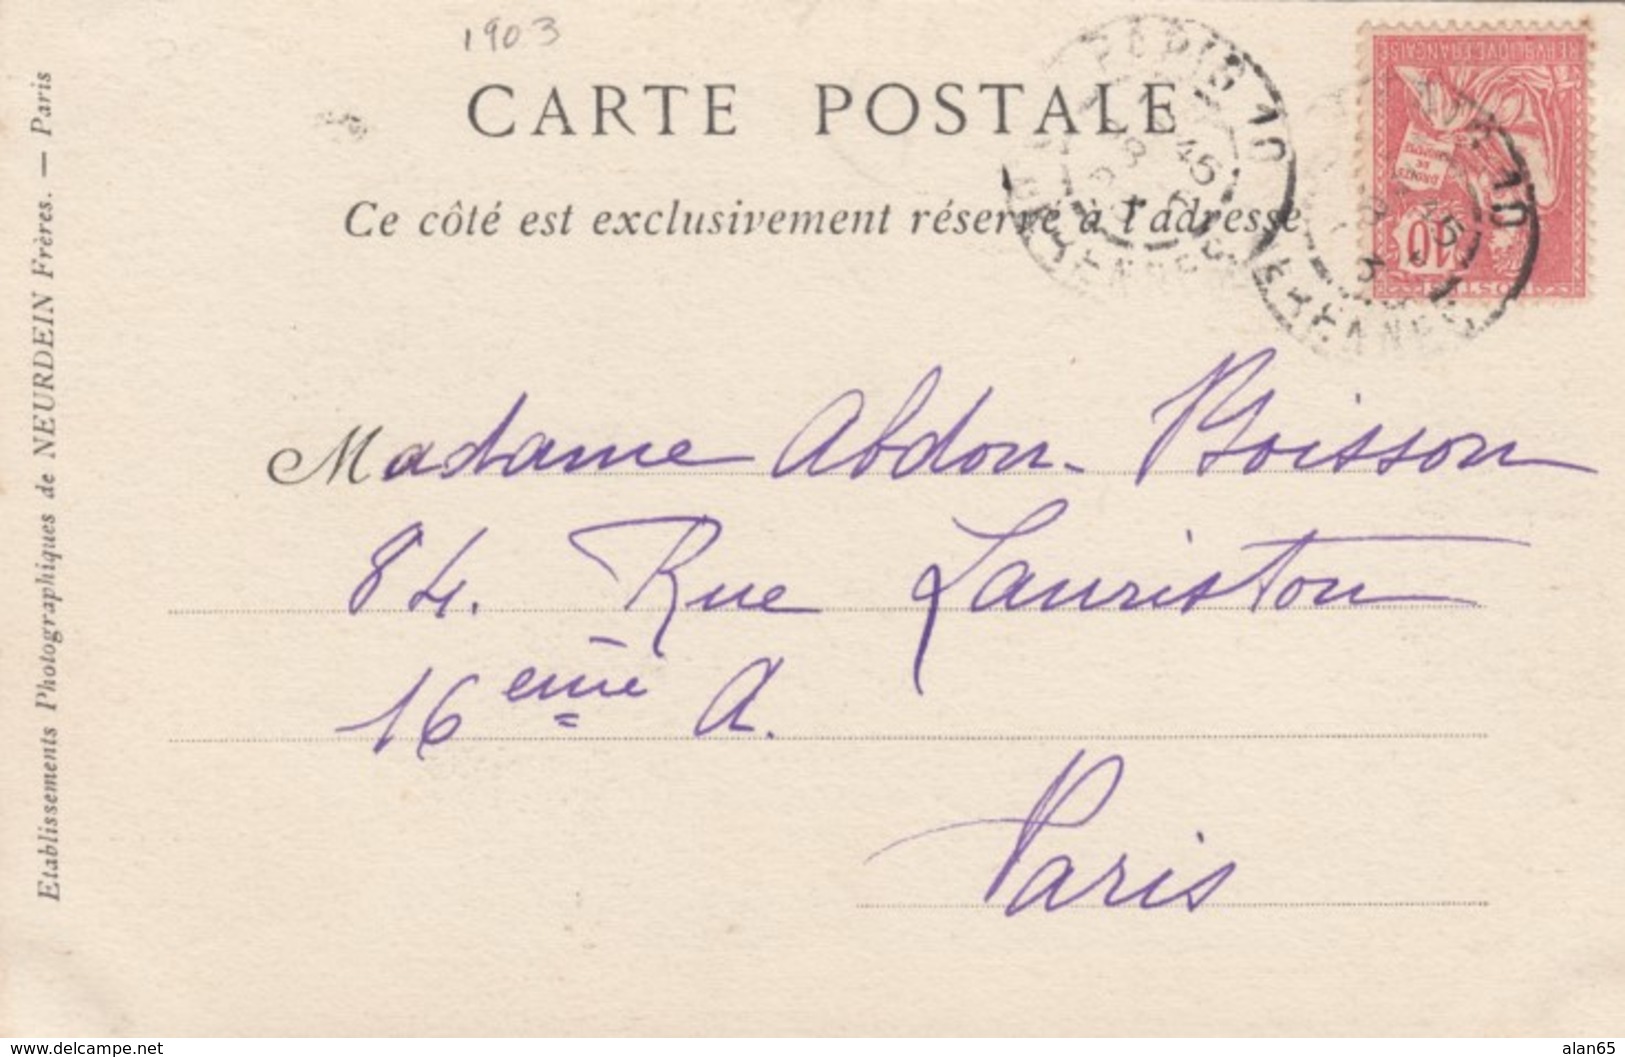 1903
CARTE POSTALE
Ce côté est exclusivement réservé à l'adresse
Etablissements Photographiques de NEURDEIN Frères. — Paris
REPUBLIQUE FRANÇAISE
DROITS DE L'HOMME
10
POSTES
PARIS 10
45
Madame Abdon-Boisson
84. Rue Lauriston
16ème A.
Paris
www.delcampe.net
alan65